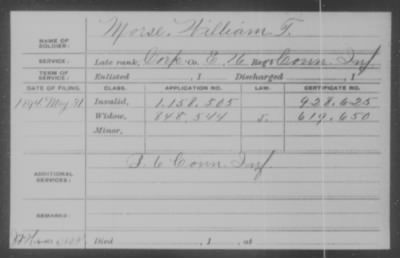 NAME OF SOLDIER: Morse, William T.
SERVICE: Late rank, Corp Co. E, 6 Reg't Conn. Inf
TERM OF SERVICE: Enlisted , 1 Discharged , 1
DATE OF FILING. CLASS. APPLICATION NO. LAW. CERTIFICATE NO.
May 31 Invalid, 1.158.505 928.625
Widow, 848.544 619.650
Minor,
ADDITIONAL SERVICES: 6 Conn. Inf
REMARKS:
Died , 1 , at